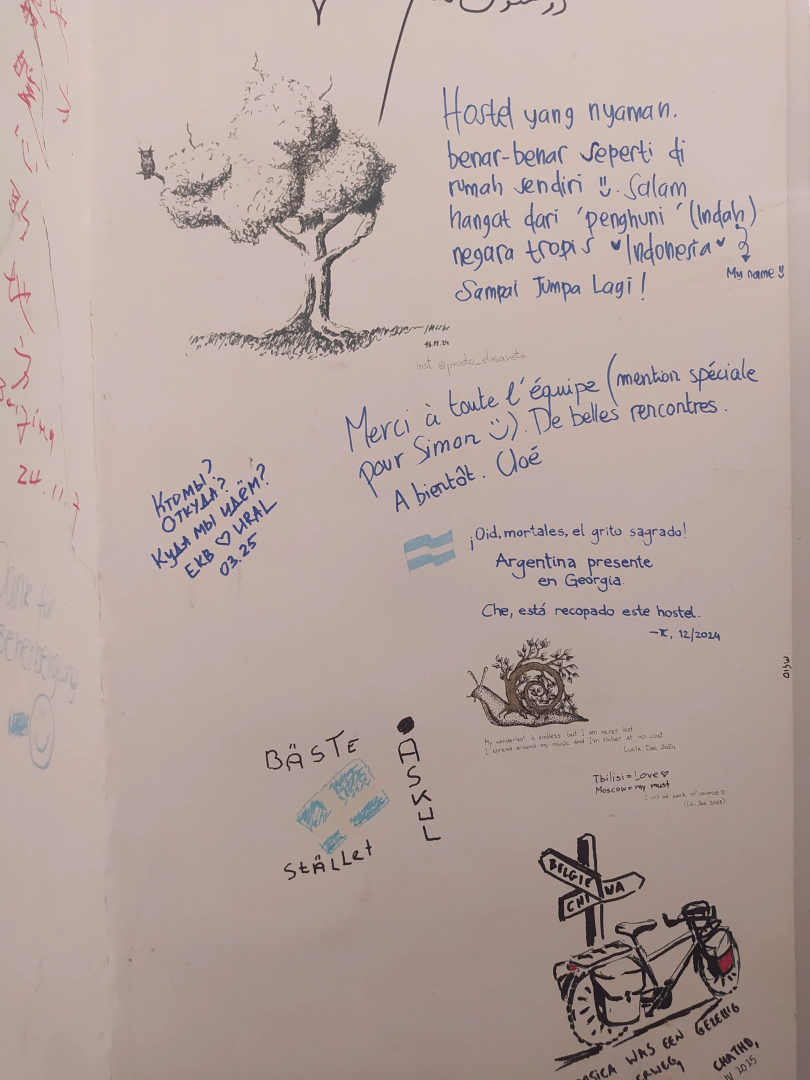 Hostel yang nyaman.
benar-benar seperti di
rumah sendiri Salam
hangat dari 'penghuni' (Indah)
negara tropis ♥Indonesia♥
My name
Sampai Jumpa Lagi!
16.11.24
inst @prosto_elisaveta
Merci à toute l'équipe (mention spéciale
pour Simon :)). De belles rencontres.
A bientôt. Cloé
КТО МЫ?
ОТКУДА?
КУДА МЫ ИДЁМ?
EKB ♡ URAL
03.25
24.11.
¡Oid, mortales, el grito sagrado!
Argentina presente
en Georgia.
Che, está recopado este hostel.
-π, 12/2024
My wanderlust is endless but I am never lost
I spread around my music and I'm richer at no cost
Lucia, Dec 2024
Tbilisi = Love♡
Moscow = my must
I will be back of course♡
BÄSTE
STÄLLET
ASKUL
BELGIE
CHINA
WAS EEN GEZELLIG
2025